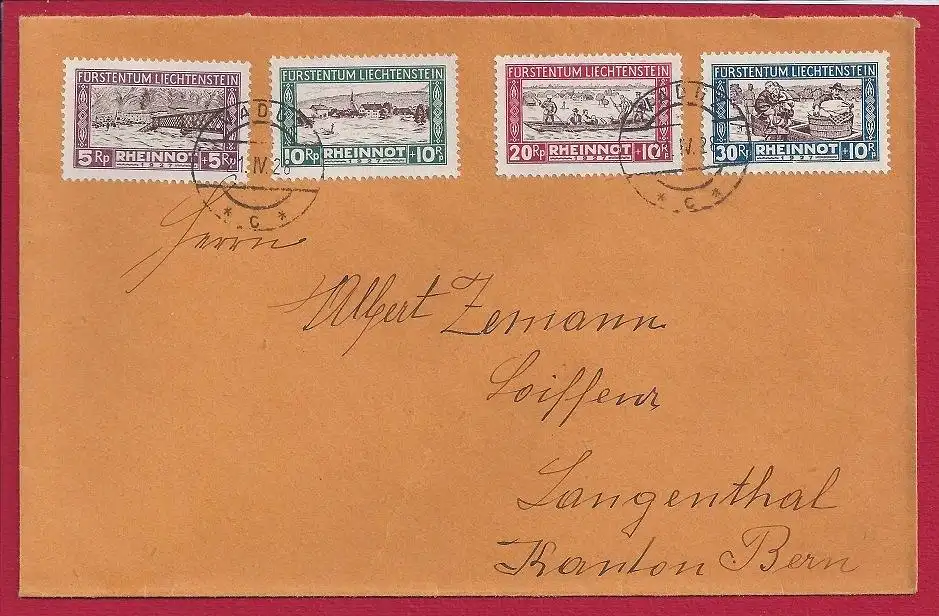 FÜRSTENTUM LIECHTENSTEIN
5 Rp RHEINNOT +5 Rp
1927
FÜRSTENTUM LIECHTENSTEIN
10 Rp RHEINNOT +10 Rp
1927
FÜRSTENTUM LIECHTENSTEIN
20 Rp RHEINNOT +10 Rp
1927
FÜRSTENTUM LIECHTENSTEIN
30 Rp RHEINNOT +10 Rp
1927
ADU
1.IV.28
* C *
IV.28
* C *
Herrn
Albert Zemann
Langenthal
Kanton Bern